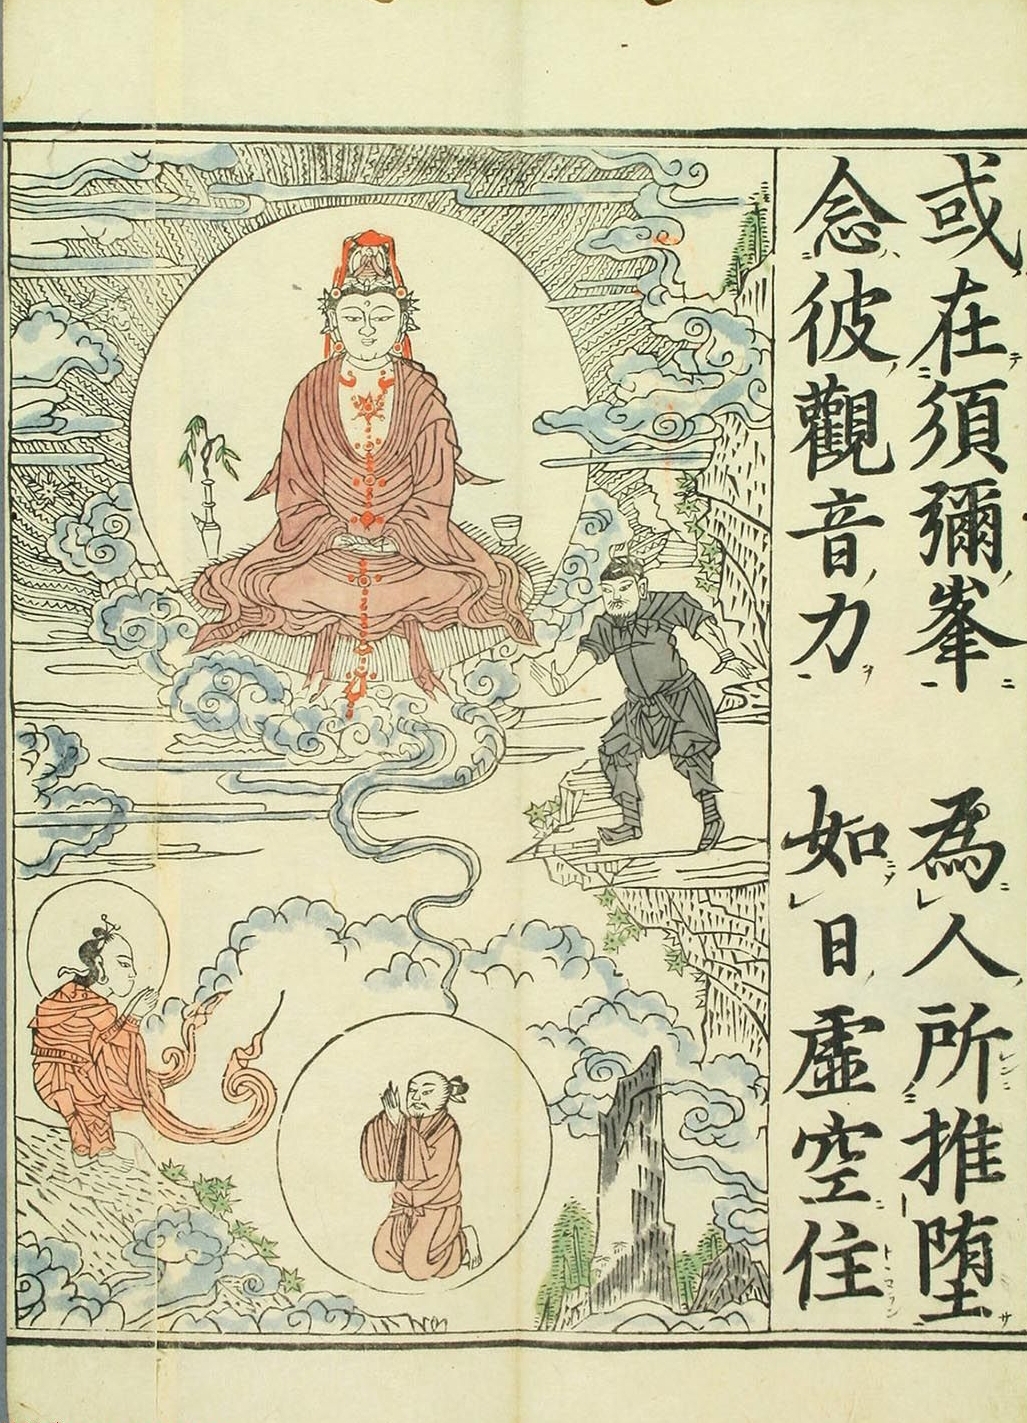 或在須彌峯 為人所推堕
念彼觀音力 如日虚空住